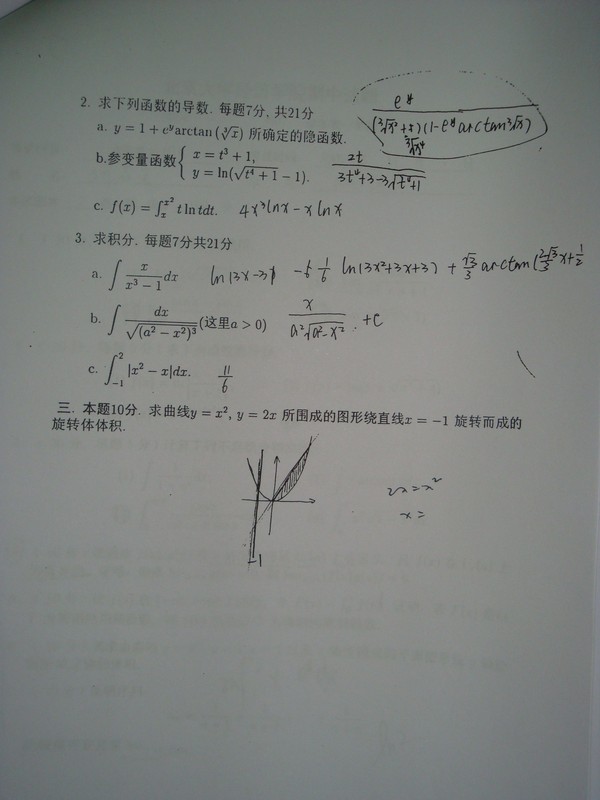 2. 求下列函数的导数. 每题7分, 共21分
a. y = 1 + e^y arctan (∛x) 所确定的隐函数.
e^y
1 - e^y arctan ∛x
b.参变量函数 { x = t³ + 1, y = ln(√(t⁴ + 1) - 1).
2t
3t⁴+3-3√(t⁴+1)
c. f(x) = ∫_x^{x²} t ln t dt. 4x³lnx - x lnx
3. 求积分. 每题7分共21分
a. ∫ x/(x³ - 1) dx ln(3x-3) 1/6 ln(3x²+3x+3) + √3/3 arctan(2√3/3 x + 1/2
b. ∫ dx/√((a² - x²)³) (这里a > 0) x/(a²√(a²-x²)) + C
c. ∫_{-1}^{2} |x² - x|dx. 11/6
三. 本题10分. 求曲线y = x², y = 2x 所围成的图形绕直线x = -1 旋转而成的
旋转体体积.
2x = x²
x =
-1